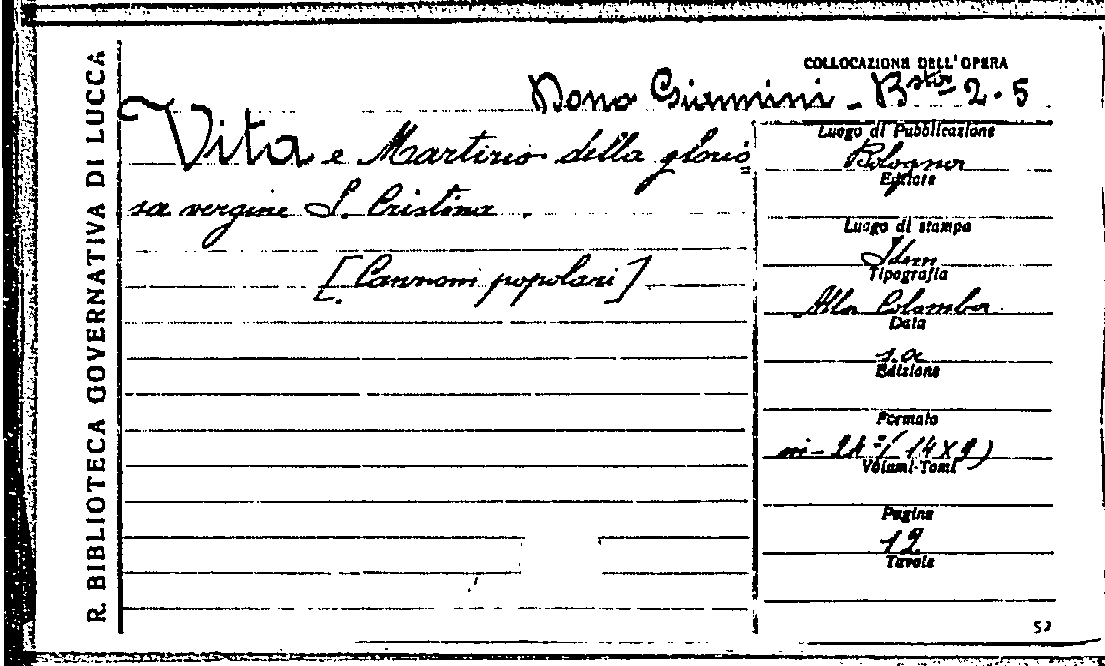 R. BIBLIOTECA GOVERNATIVA DI LUCCA
COLLOCAZIONE DELL'OPERA
Dono Giannini - Bsta 2.5
Vita e Martirio della glorio
sa vergine S. Cristina.
[Canzoni popolari]
Luogo di Pubblicazione
Bologna
Editore
Luogo di stampa
Idem
Tipografia
Alla Colomba
Data
s.a
Edizione
Formato
in-24º (14X9)
Volumi-Tomi
Pagine
12
Tavole
52